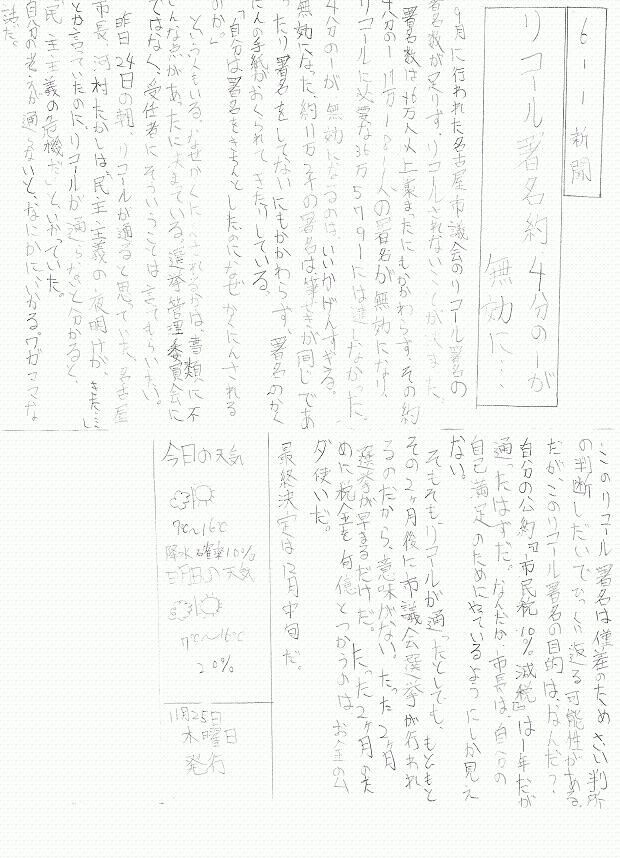 6－1新聞
リコール署名約4分の一が
無効に…
9月に行われた名古屋市議会のリコール署名の
署名数が足りず、リコールされないことが決まった。
署名数は46万人以上集まったにもかかわらず、その約
4分の一の11万1811人の署名が無効になり、
リコールに必要な36万5791には達しなかった。
4分の一が無効になるのは、いいかげんすぎる。
無効になった、約11万人分の署名は筆せきが同じであ
ったり署名をしてないにもかかわらず、署名のかく
にんの手紙がおくられてきたりしている。
「自分は署名をきちんとしたのになぜかくにんされる
のか。」
という人もいる。なぜかくにんされるかは、書類に不
しんな点があったに決まっている。選挙管理委員会に
ではなく、受任者にそういうことは言てもらいたい。
昨日24日の朝、リコールが通ると思っていた、名古屋
市長、河村たかしは「民主主義の夜明けが、きた…」
とか言っていたのにリコールが通らないと分かると、
「民主主義の危機だ」といかっていた。
自分の考えが通らないと、なにかにいかる。ワガママな
話だ。
…このリコール署名は僅差のためさい判所
の判断しだいでひっくり返る可能性がある。
だがこのリコール署名の目的は、なんだ？
自分の公約『市民税10%減税』は1年だが
通ったはずだ。なんだか市長は、自分の
自己満足のためにやているようにしか見え
ない。
そもそも、リコールが通ったとしても、もともと
その2ヶ月後に市議会選挙が行われ
るのだから、意味がない。たった2ヶ月
選挙が早まるだけだ。たった2ヶ月のた
めに税金を何億とつかうのはお金のム
ダ使いだ。
最終決定は12月中旬だ。
今日の天気
7℃〜16℃
降水確率10%
明日の天気
7℃〜16℃
20%
11月25日
木曜日
発行